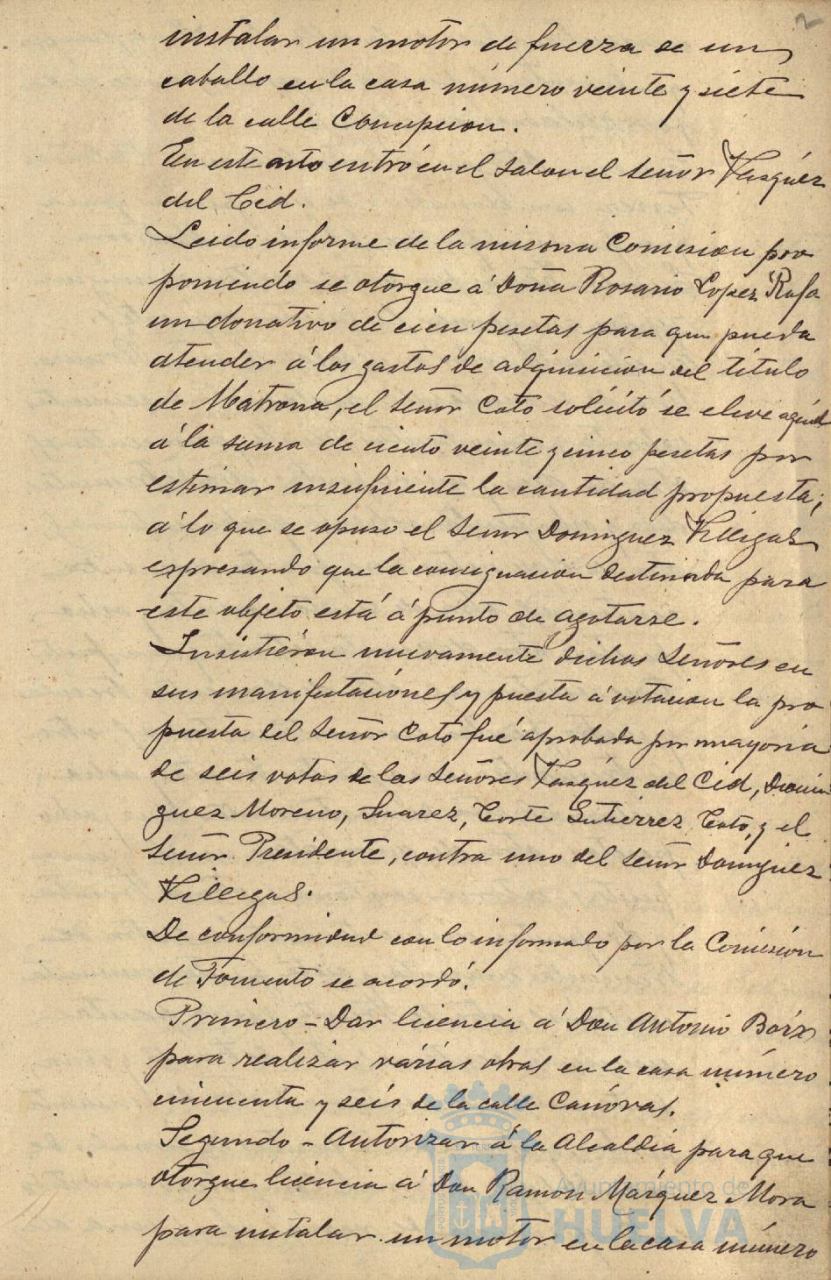 2
instalar un motor de fuerza de un
caballo en la casa número veinte y siete
de la calle Concepcion.
En este acto entró en el salon el Señor Vasquéz
del Cid.
Leido informe de la misma Comision pro
poniendo se otorgue á Doña Rosario Lopez Rafa
un donativo de cien pesetas para que pueda
atender á los gastos de adquisicion del título
de Matrona, el Señor Coto solicitó se eleve aquel
á la suma de ciento veinte y cinco pesetas por
estimar insuficiente la cantidad propuesta;
á lo que se opuso el Señor Dominguez Villegas
espresando que la consignacion destinada para
este objeto está á punto de agotarse.
Insistiéron nuevamente dichos Señores en
sus manifestaciónes y puesta á votacion la pro
puesta del Señor Coto fué aprobada por mayoria
de seis votos de los Señores Vasquéz del Cid, Domin
guez Moreno, Suarez, Corte Gutierrez, Coto, y el
Señor Presidente, contra uno del Señor Dominguez
Villegas.
De conformidad con lo informado por la Comisión
de Fomento se acordó.
Primero - Dar licencia á Don Antonio
para realizar várias obras en la casa número
cincuenta y seis de la calle Canovas.
Segundo - Autorizar á la Alcaldia para que
otorgue licencia á Don Ramon Márquez Mora
para instalar un motor en la casa número
Ayuntamiento de
HUELVA